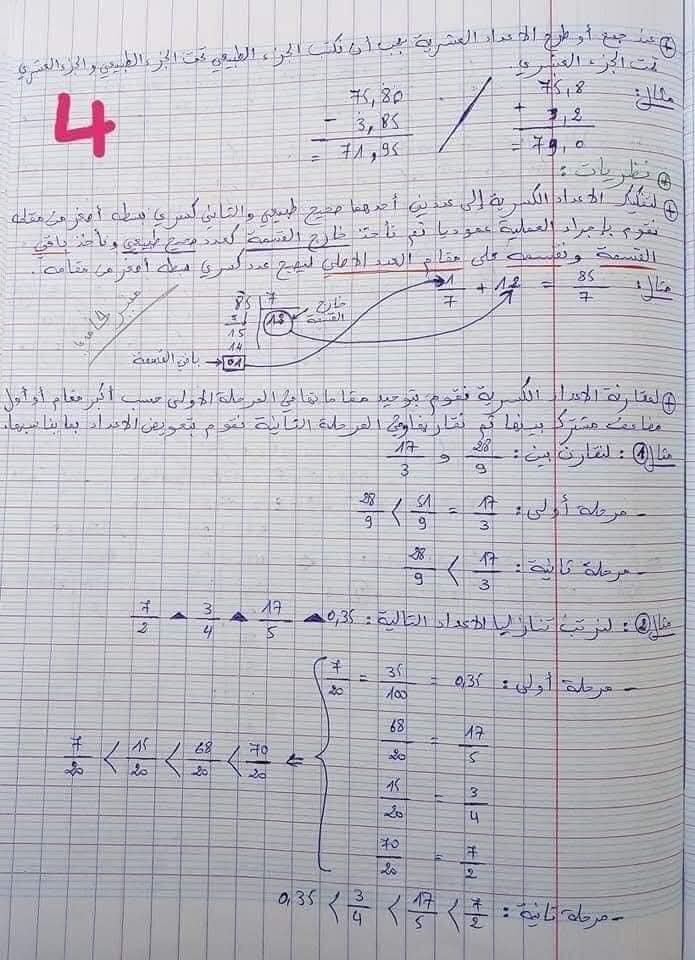 عند جمع أو طرح الأعداد العشرية يجب أن نكتب الجزء الطبيعي تحت الجزء الطبيعي والجزء العشري
تحت الجزء العشري.
مثال:
75,8 + 3,2 = 79,0
75,80 - 3,85 = 71,95
4
نظريات:
لتفكيك الأعداد الكسرية إلى عددين أحدهما صحيح طبيعي والثاني كسري بسطه أصغر من مقامه
نقوم بإجراء العملية عموديا ثم نأخذ خارج القسمة كعدد صحيح طبيعي ونأخذ باقي
القسمة ونقسمه على مقام العدد الأصلي ليصبح عدد كسري بسطه أصغر من مقامه.
مثال: 85/7 = 12 + 1/7
85 | 7
خارج القسمة
12
15
14
باقي القسمة → 01
لمقارنة الأعداد الكسرية نقوم بتوحيد مقاماتها في المرحلة الأولى حسب أكبر مقام أو أول
مضاعف مشترك بينها ثم نقارنها وفي المرحلة الثانية نقوم بتعويض الأعداد بما يناسبها.
مثال 1: لنقارن بين: 28/9 و 17/3
- مرحلة أولى: 17/3 = 51/9 > 28/9
- مرحلة ثانية: 17/3 > 28/9
مثال 2: لنرتب تنازليا الأعداد التالية: 0,35 ▲ 17/5 ▲ 3/4 ▲ 7/2
- مرحلة أولى: 0,35 = 35/100 = 7/20
17/5 = 68/20
3/4 = 15/20
7/2 = 70/20
⇐ 70/20 > 68/20 > 15/20 > 7/20
- مرحلة ثانية: 7/2 > 17/5 > 3/4 > 0,35